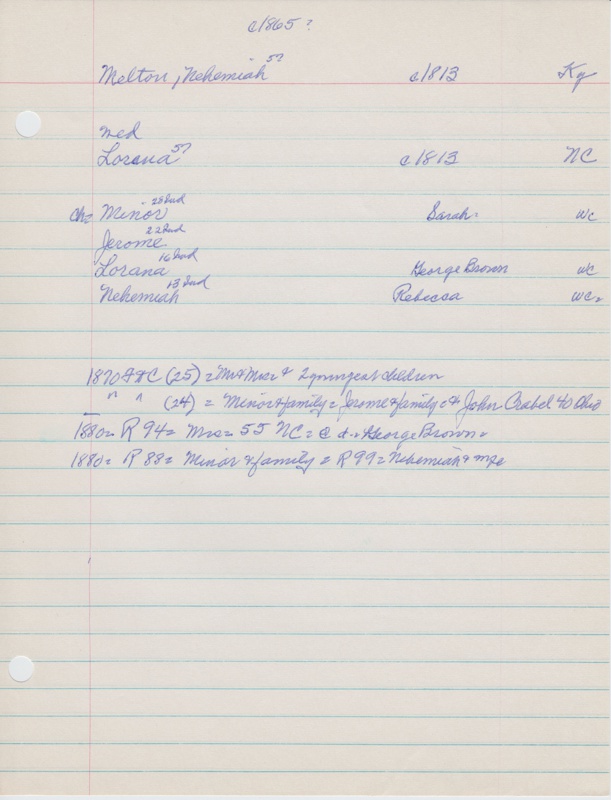 c1865?
Melton, Nehemiah 57 c1813 Ky
med
Lorana 57 c1813 NC
ch= Minor 28 Ind Sarah= WC
Jerome 22 Ind
Lorana 16 Ind George Brown WC
Nehemiah 13 Ind Rebecca WC=
1870 (25) = Mr & Mrs = & 2 youngest children
" " (24) = Minor & family = Jerome & family = & John Crabel 40 Ohio
1880= R 94= Mrs= 55 NC= @ d.= George Brown=
1880= R 88= Minor & family = R 99= Nehemiah &